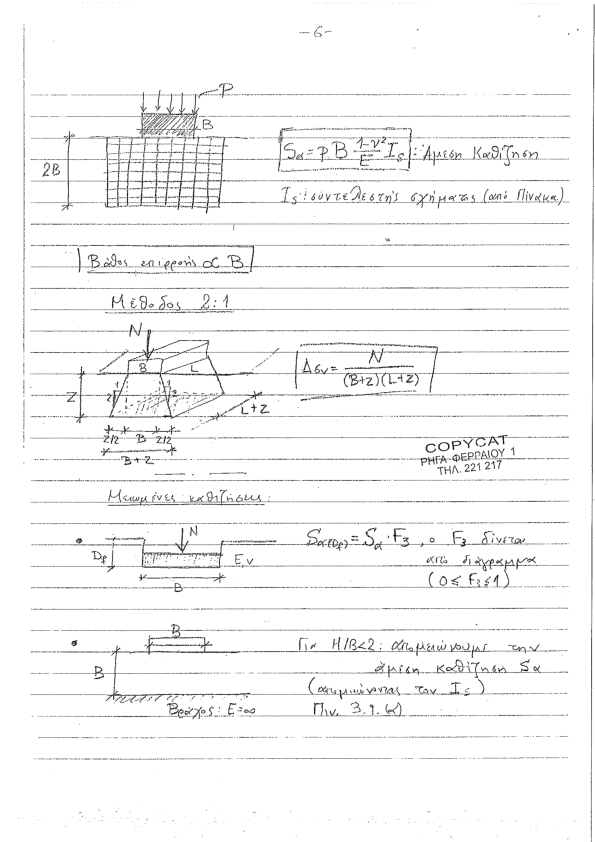 -6-
P
B
2B
Sα = p B (1-ν²)/E I_s : Άμεση Καθίζηση
I_s : συντελεστής σχήματος (από Πίνακα)
Βάθος επιρροής ∝ B
Μέθοδος 2:1
N
B L
Z 2 1 2 1
Δσv = N / (B+z)(L+z)
L+Z
Z/2 B Z/2
B+Z
COPYCAT
ΡΗΓΑ ΦΕΡΡΑΙΟΥ 1
ΤΗΛ. 221 217
Μειωμένες καθιζήσεις:
N
Df E,ν
B
Sα(Df) = Sα · F3 , ο F3 δίνεται
από διάγραμμα
(0≤ F3≤1)
B
B
Βράχος: E=∞
Για H/B<2: απομειώνουμε την
άμεση καθίζηση Sα
(απομειώνοντας τον I_s)
Πιν. 3.1.(α)